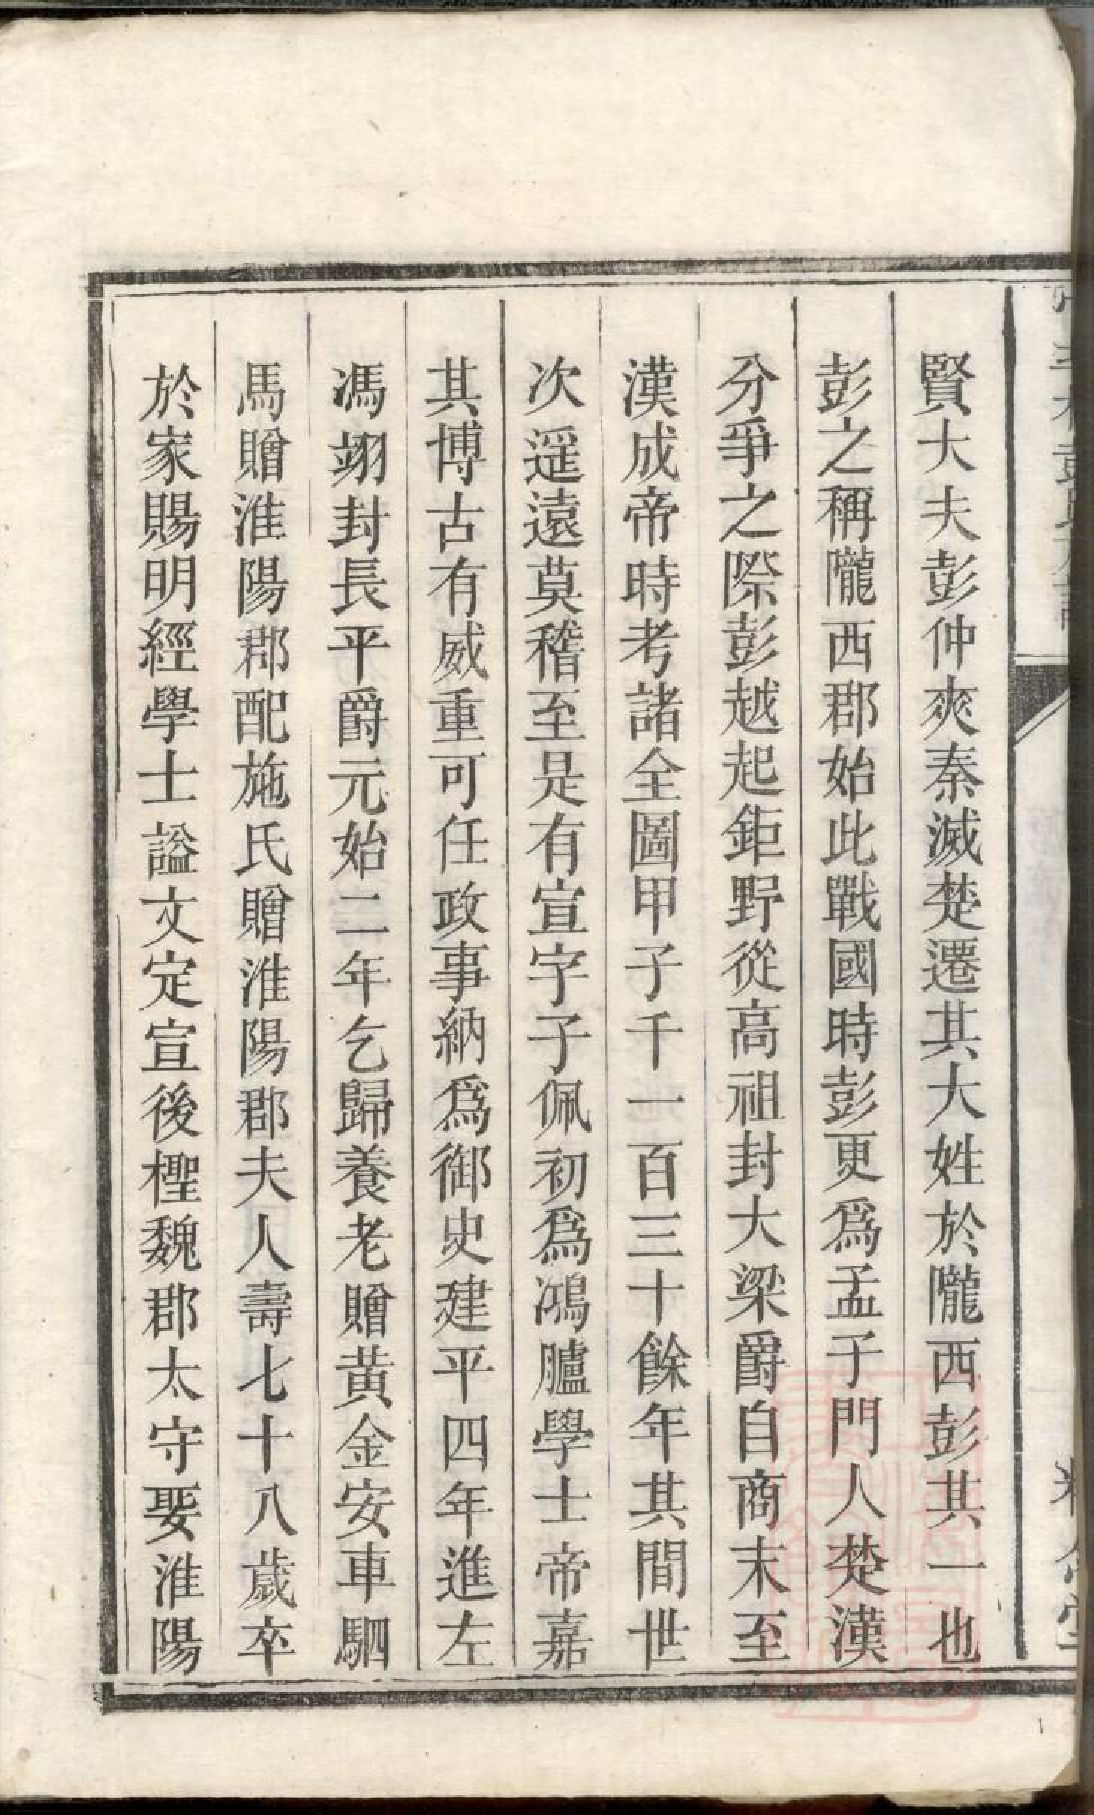 賢大夫彭仲爽秦滅楚遷其大姓於隴西彭其一也
彭之稱隴西郡始此戰國時彭更爲孟子門人楚漢
分爭之際彭越起鉅野從高祖封大梁爵自商末至
漢成帝時考諸全圖甲子千一百三十餘年其間世
次遥遠莫稽至是有宣字子佩初爲鴻臚學士帝嘉
其博古有威重可任政事納爲御史建平四年進左
馮翊封長平爵元始二年乞歸養老贈黄金安車駟
馬贈淮陽郡配施氏贈淮陽郡夫人壽七十八歲卒
於家賜明經學士謚文定宣後檉魏郡太守娶淮陽